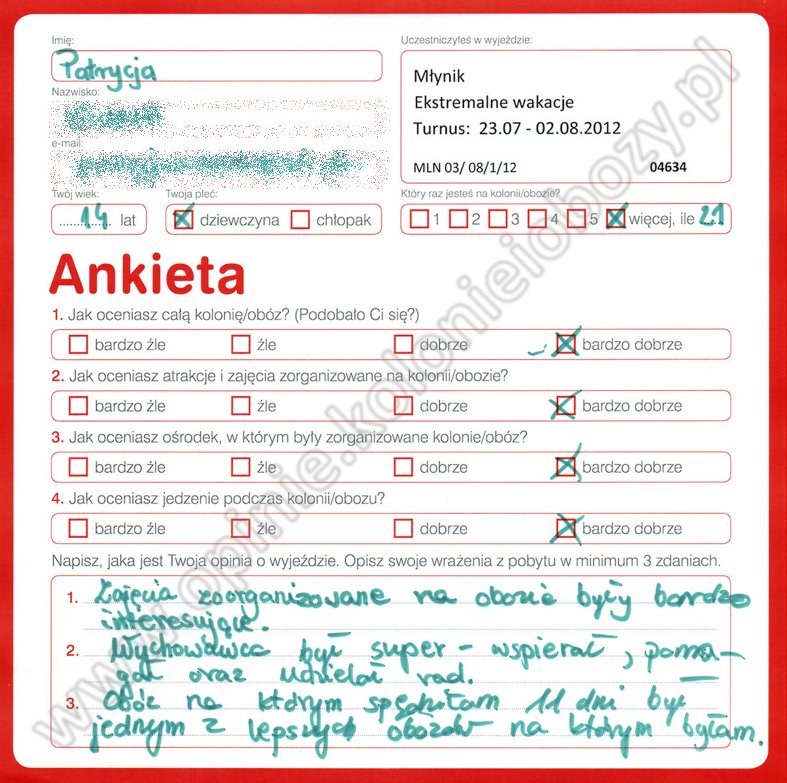 Imię:
Patrycja
Nazwisko:
e-mail:
Uczestniczyłeś w wyjeździe:
Młynik
Ekstremalne wakacje
Turnus: 23.07 - 02.08.2012
MLN 03/ 08/1/12 04634
Twój wiek:
14 lat
Twoja płeć:
dziewczyna chłopak
Który raz jesteś na kolonii/obozie?
1 2 3 4 5 więcej, ile 21
Ankieta
1. Jak oceniasz całą kolonię/obóz? (Podobało Ci się?)
bardzo źle źle dobrze bardzo dobrze
2. Jak oceniasz atrakcje i zajęcia zorganizowane na kolonii/obozie?
bardzo źle źle dobrze bardzo dobrze
3. Jak oceniasz ośrodek, w którym były zorganizowane kolonie/obóz?
bardzo źle źle dobrze bardzo dobrze
4. Jak oceniasz jedzenie podczas kolonii/obozu?
bardzo źle źle dobrze bardzo dobrze
Napisz, jaka jest Twoja opinia o wyjeździe. Opisz swoje wrażenia z pobytu w minimum 3 zdaniach.
1. Zajęcia zoorganizowane na obozie były bardzo
interesujące.
2. Wychowawca był super - wspierał, poma-
gał oraz udzielał rad.
3. Obóz na którym spędziłam 11 dni był
jednym z lepszych obozów na którym byłam.
www.opinie.kolonieiobozy.pl